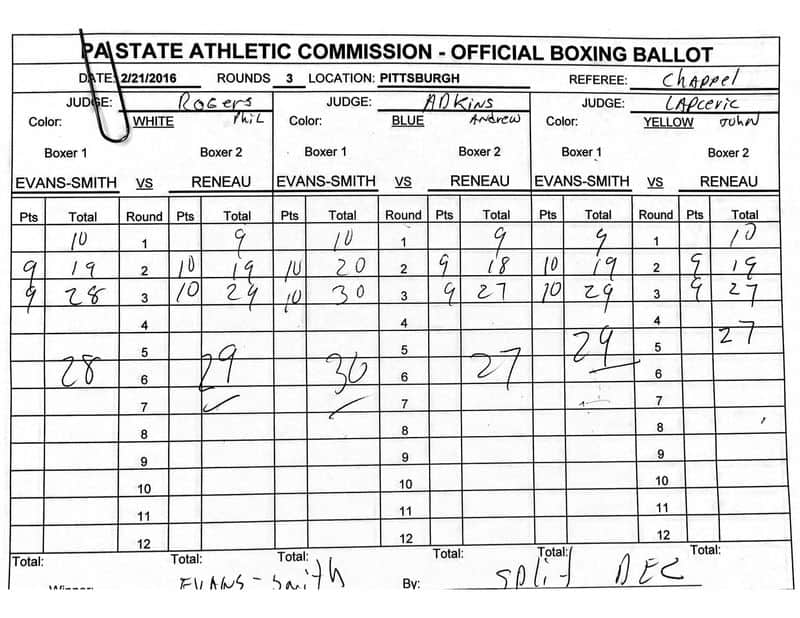 PA STATE ATHLETIC COMMISSION - OFFICIAL BOXING BALLOT
DATE: 2/21/2016 ROUNDS 3 LOCATION: PITTSBURGH REFEREE: Chappel
JUDGE: Rogers JUDGE: ADKins JUDGE: LAPceric
Color: WHITE Phil Color: BLUE Andrew Color: YELLOW John
Boxer 1 Boxer 2 Boxer 1 Boxer 2 Boxer 1 Boxer 2
EVANS-SMITH VS RENEAU EVANS-SMITH VS RENEAU EVANS-SMITH VS RENEAU
Pts Total Round Pts Total Pts Total Round Pts Total Pts Total Round Pts Total
10 1 9 10 1 9 9 1 10
9 19 2 10 19 10 20 2 9 18 10 19 2 9 19
9 28 3 10 29 10 30 3 9 27 10 29 3 9 27
4 4 4
5 5 29 5 27
28 6 29 30 6 27 6
7 7 7
8 8 8
9 9 9
10 10 10
11 11 11
12 12 12
Total: Total: Total: Total: Total: Total:
Winner: EVANS-Smith By: Split DEC